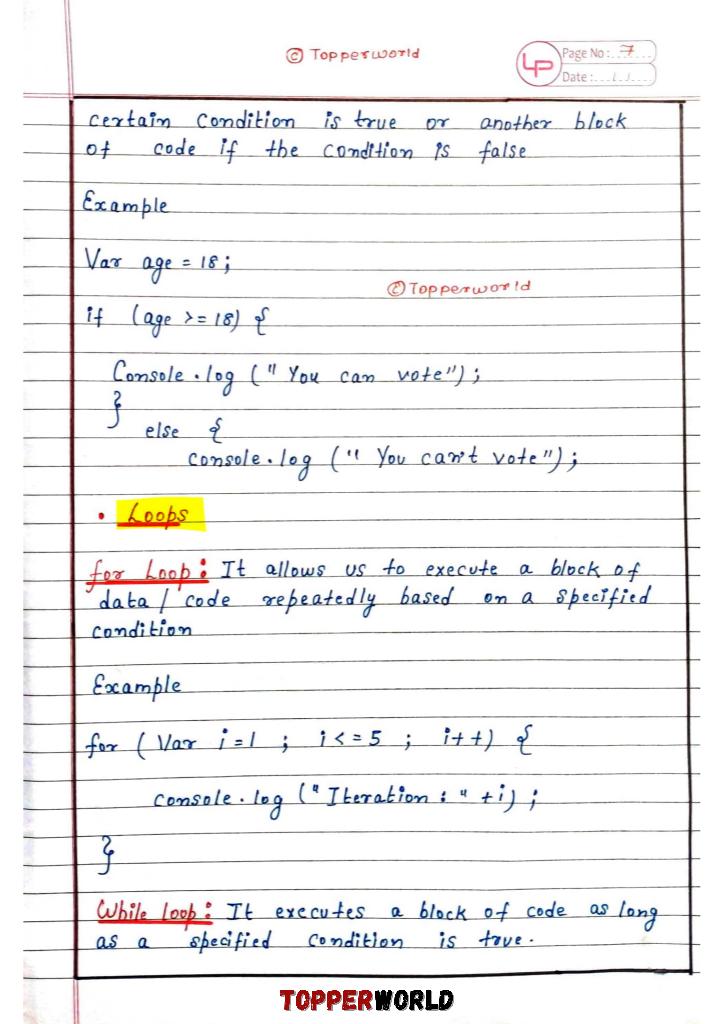 © Topperworld
LP
Page No: 7
Date:
certain condition is true or another block
of code if the condition is false
Example
Var age = 18;
© Topperworld
if (age >= 18) {
Console.log (" You can vote");
}
else {
console.log (" You can't vote");
• Loops
for Loop: It allows us to execute a block of
data / code repeatedly based on a specified
condition
Example
for ( Var i=1 ; i<=5 ; i++) {
console.log ("Iteration : " +i) ;
}
While loop: It executes a block of code as long
as a specified condition is true.
TOPPERWORLD